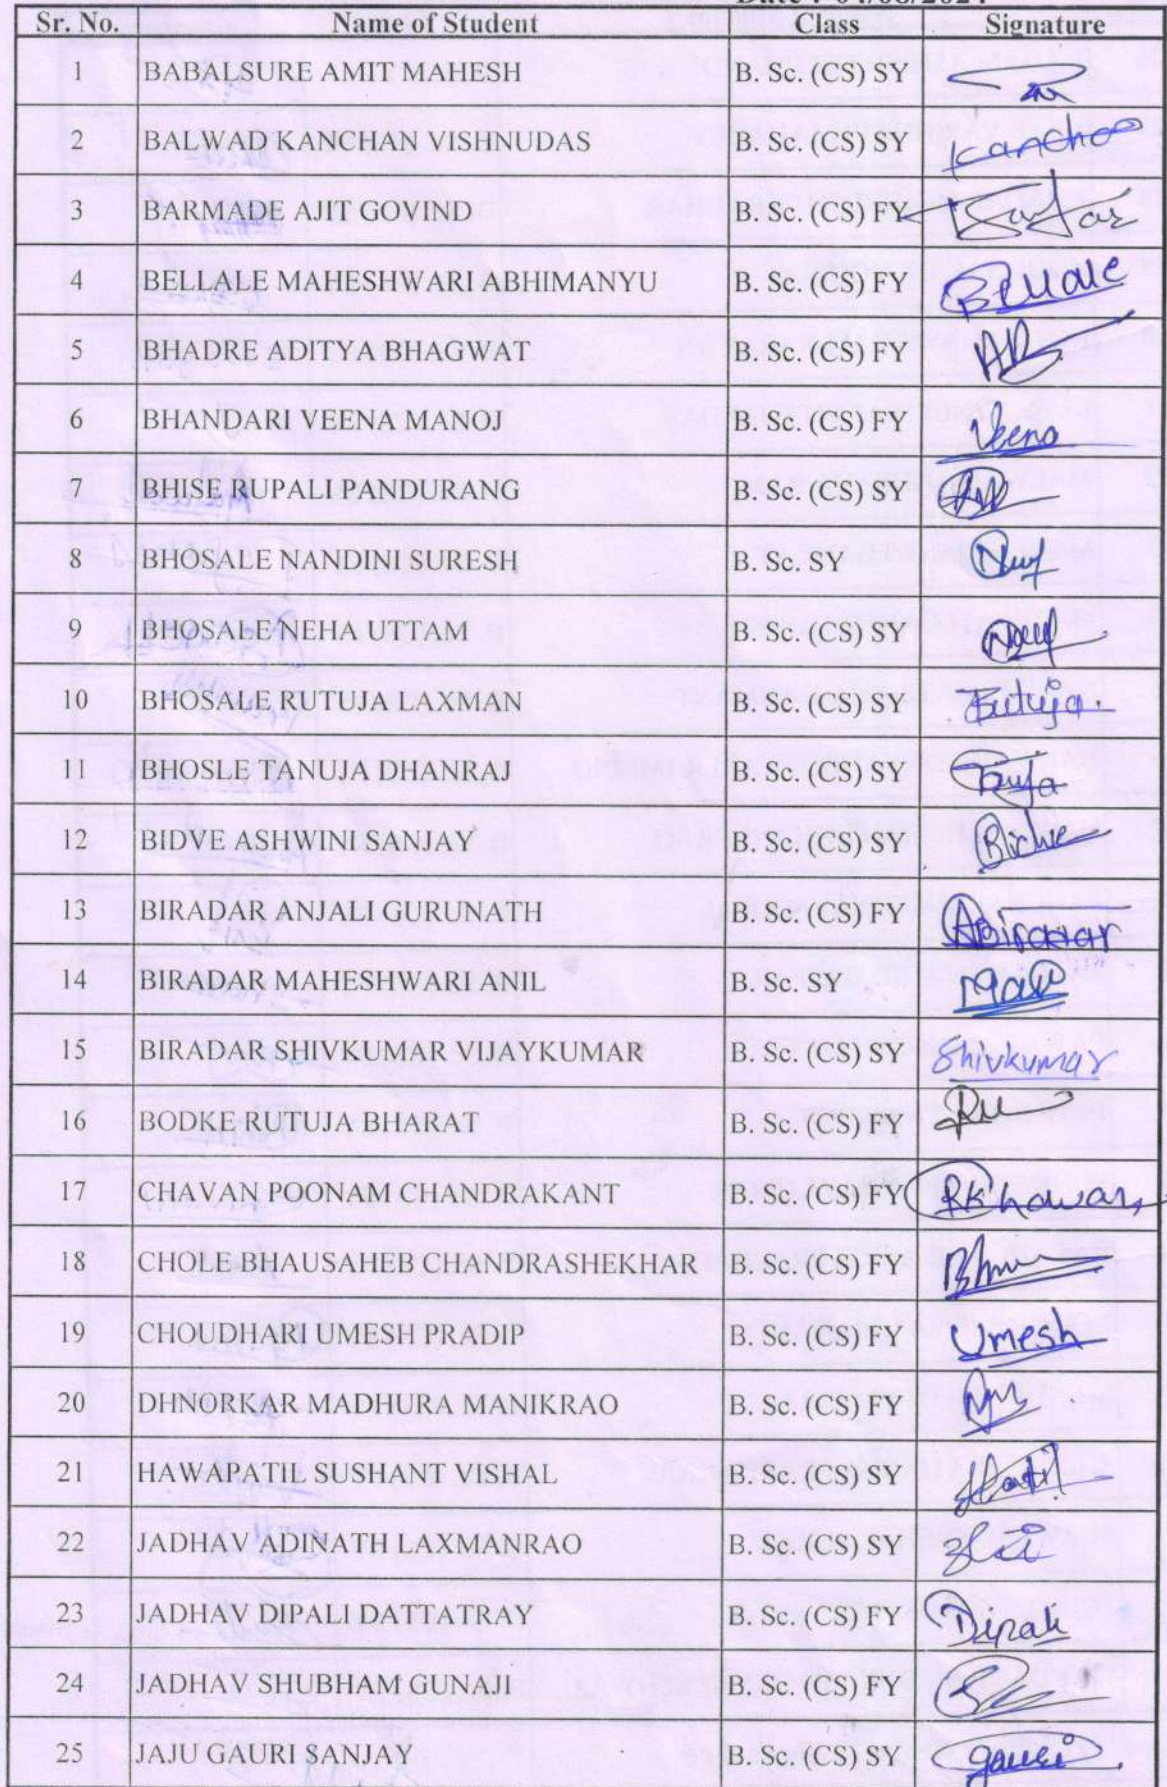 Sr. No. Name of Student Class Signature
1 BABALSURE AMIT MAHESH B. Sc. (CS) SY
2 BALWAD KANCHAN VISHNUDAS B. Sc. (CS) SY Kancho
3 BARMADE AJIT GOVIND B. Sc. (CS) FY
4 BELLALE MAHESHWARI ABHIMANYU B. Sc. (CS) FY Bellale
5 BHADRE ADITYA BHAGWAT B. Sc. (CS) FY
6 BHANDARI VEENA MANOJ B. Sc. (CS) FY Veena
7 BHISE RUPALI PANDURANG B. Sc. (CS) SY
8 BHOSALE NANDINI SURESH B. Sc. SY
9 BHOSALE NEHA UTTAM B. Sc. (CS) SY
10 BHOSALE RUTUJA LAXMAN B. Sc. (CS) SY Rutuja
11 BHOSLE TANUJA DHANRAJ B. Sc. (CS) SY
12 BIDVE ASHWINI SANJAY B. Sc. (CS) SY
13 BIRADAR ANJALI GURUNATH B. Sc. (CS) FY ABiradar
14 BIRADAR MAHESHWARI ANIL B. Sc. SY
15 BIRADAR SHIVKUMAR VIJAYKUMAR B. Sc. (CS) SY Shivkumar
16 BODKE RUTUJA BHARAT B. Sc. (CS) FY
17 CHAVAN POONAM CHANDRAKANT B. Sc. (CS) FY
18 CHOLE BHAUSAHEB CHANDRASHEKHAR B. Sc. (CS) FY
19 CHOUDHARI UMESH PRADIP B. Sc. (CS) FY Umesh
20 DHNORKAR MADHURA MANIKRAO B. Sc. (CS) FY
21 HAWAPATIL SUSHANT VISHAL B. Sc. (CS) SY
22 JADHAV ADINATH LAXMANRAO B. Sc. (CS) SY
23 JADHAV DIPALI DATTATRAY B. Sc. (CS) FY Dipali
24 JADHAV SHUBHAM GUNAJI B. Sc. (CS) FY
25 JAJU GAURI SANJAY B. Sc. (CS) SY gauri